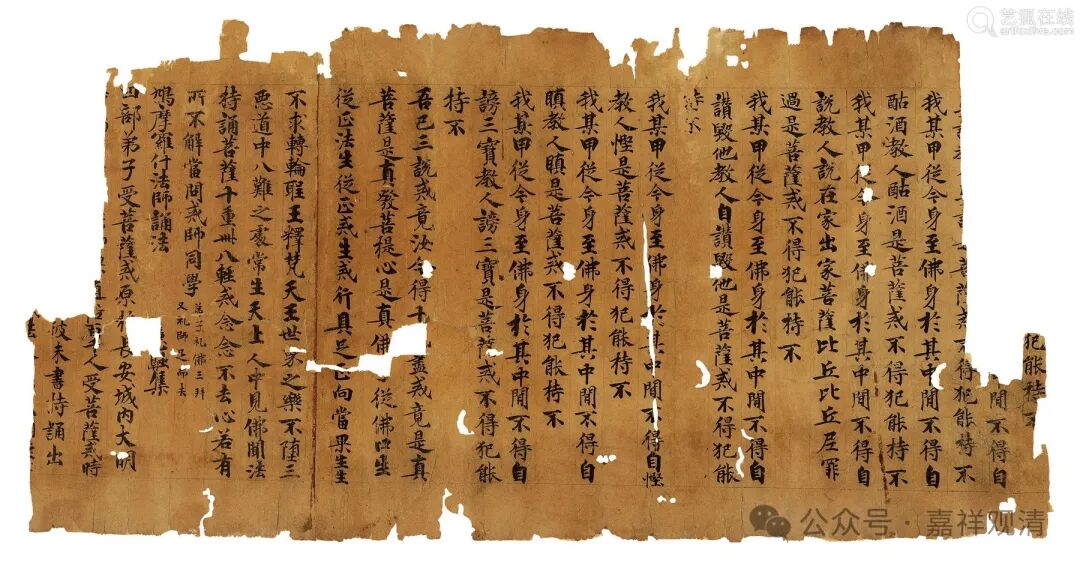 犯能持不
間不得自
菩薩戒不得犯能持不
我某甲從今身至佛身於其中間不得自
酤酒教人酤酒是菩薩戒不得犯能持不
我某甲從今身至佛身於其中間不得自
說教人說在家出家菩薩比丘比丘尼罪
過是菩薩戒不得犯能持不
我某甲從今身至佛身於其中間不得自
讃毀他教人自讃毀他是菩薩戒不得犯能
持不
我某甲從今身至佛身於其中間不得自慳
教人慳是菩薩戒不得犯能持不
我某甲從今身至佛身於其中間不得自
瞋教人瞋是菩薩戒不得犯能持不
我某甲從今身至佛身於其中間不得自
謗三寶教人謗三寶是菩薩戒不得犯能
持不
吾已三說戒竟汝今得十盡戒竟是真
菩薩是真發菩提心是真佛從佛口生
從正法生從正戒生戒行具足正向當果生生
不求轉輪聖王釋梵天王世界之樂不墮三
惡道中八難之處常生天上人中見佛聞法
持誦菩薩十重卌八輕戒念念不去心若有
所不解當問戒師同學
弟子礼佛三拜
又礼師三拜去
鳩摩羅什法師誦法融集
四部弟子受菩薩戒原於長安城内大明
人受菩薩戒時
未書持誦出
艺狐在线
artfoxlive.com
公众号·嘉祥观清